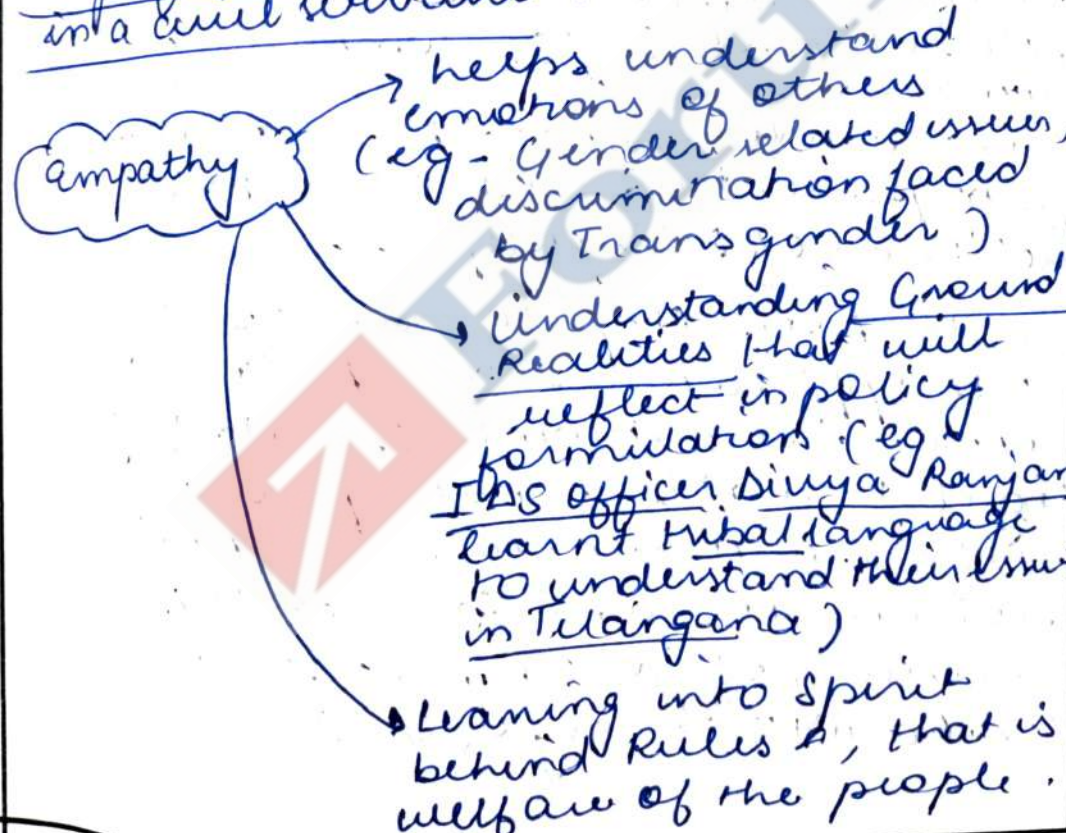 in a civil servant
Empathy
helps understand
emotions of others
(eg - Gender related issues,
discrimination faced
by Transgender)
Understanding Ground
Realities that will
reflect in policy
formulation (eg -
IAS officer Divya Ranjan
learnt tribal language
to understand their issue
in Telangana)
Leaning into Spirit
behind Rules, that is
welfare of the people.
Foru